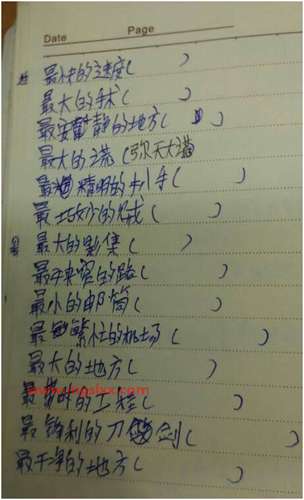 Date Page
最快的速度( )
最大的手术( )
最安静的地方( )
最大的谎(弥天大谎
最精明的扒手( )
最巧妙的贼( )
最大的影集( )
最宽的路( )
最小的邮筒( )
最繁忙的机场( )
最大的地方( )
最的工程( )
最锋利的刀剑( )
最干净的地方( )